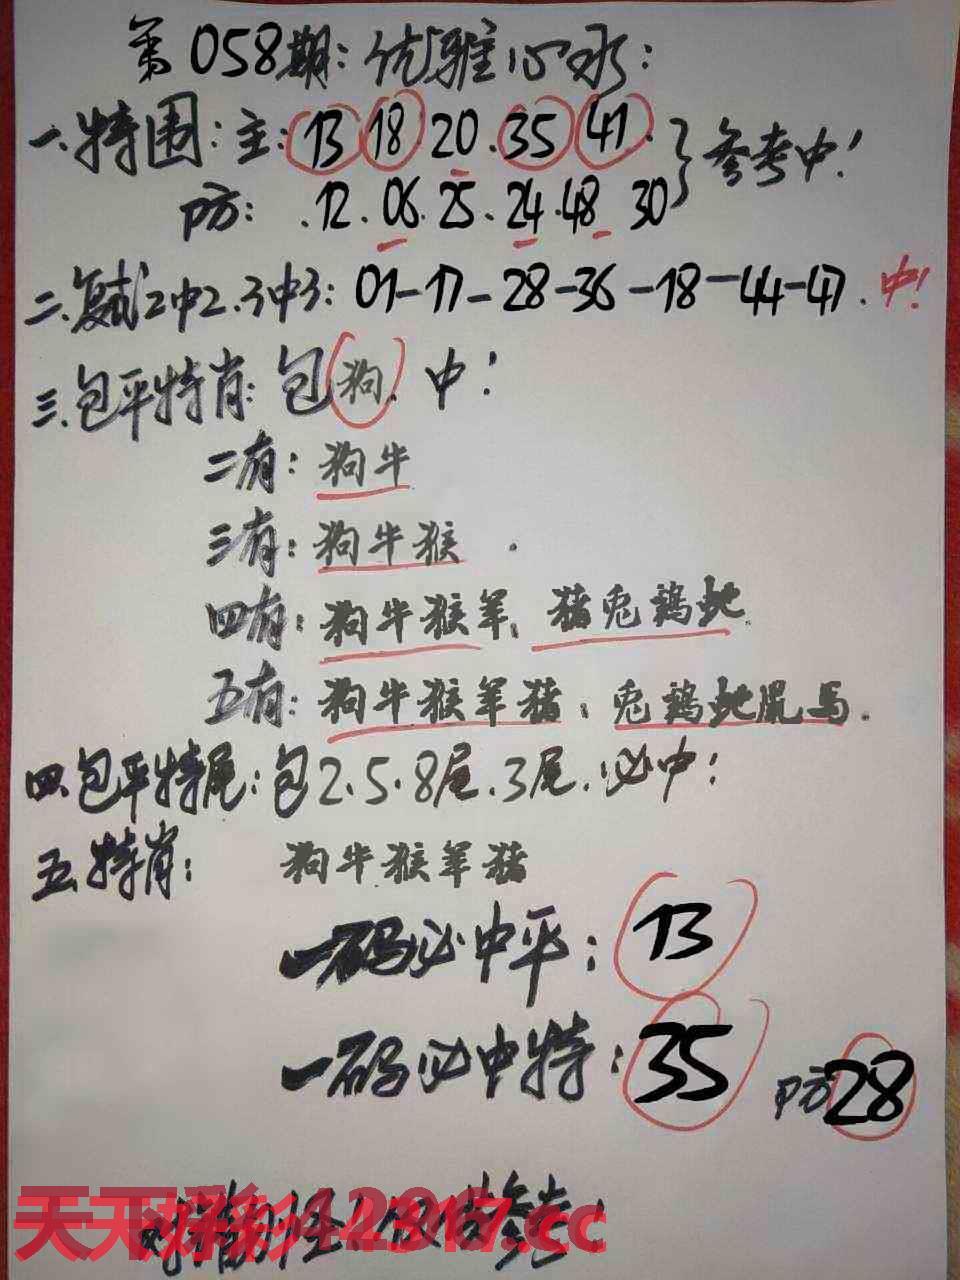 第058期:优雅心水:
一.特围:主:13 18 20.35 41.}参考中!
防:.12.06.25.24.48 30
二.复试2中2.3中3:01-17-28-36-18-44-47.中!
三.包平特肖:包狗.中!
二有:狗牛
三有:狗牛猴.
四有:狗牛猴羊、猪兔鸡蛇.
五有:狗牛猴羊猪、兔鸡蛇鼠马.
四.包平特尾:包2.5.8尾.3尾.必中!
五.特肖:狗牛猴羊猪
一码必中平:13
一码必中特:35 防28
天下彩 参考!